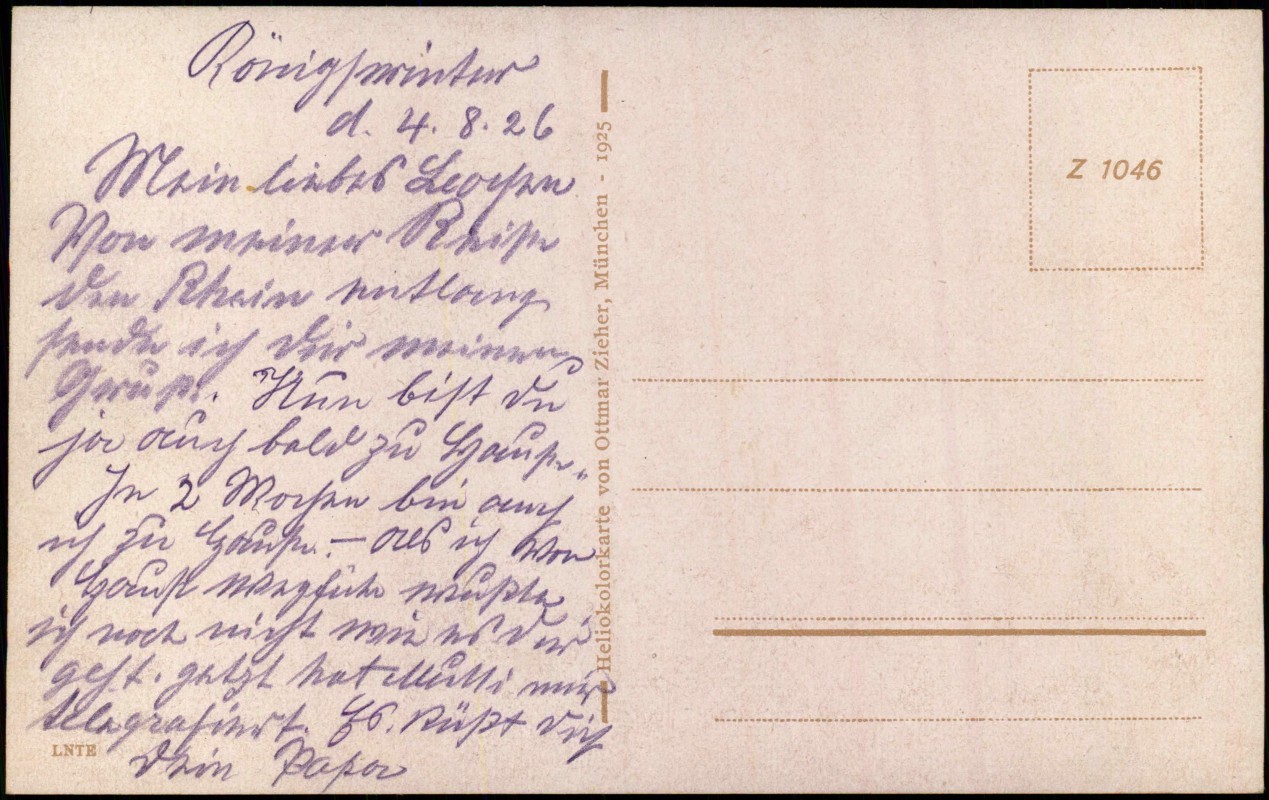 Königswinter
d. 4. 8. 26
Mein liebes Lochen
Von meiner Reise
den Rhein entlang
sende ich dir meinen
Gruß. Nun bist du
ja auch bald zu Hause.
In 2 Wochen bin auch
ich zu Hause. – Als ich von
Hause wegfuhr wußte
ich noch nicht wie es dir
geht. Jetzt hat Mutti mir
telegrafiert. Es küßt dich
Dein Papa
LNTE
Heliokolorkarte von Ottmar Zieher, München - 1925
Z 1046